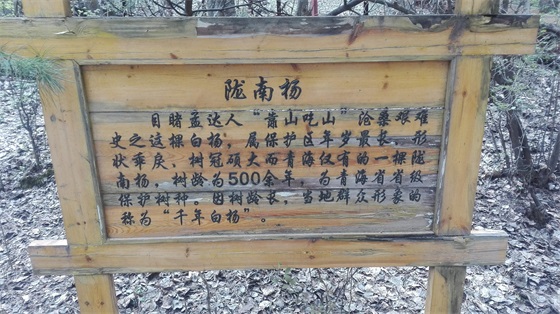 陇南杨
目睹孟达人“靠山吃山”沧桑艰难
史之这棵白杨，属保护区年岁最长、形
状乖戾、树冠硕大而青海仅有的一棵陇
南杨，树龄为500余年，为青海省省级
保护树种。因树龄长，当地群众形象的
称为“千年白杨”。